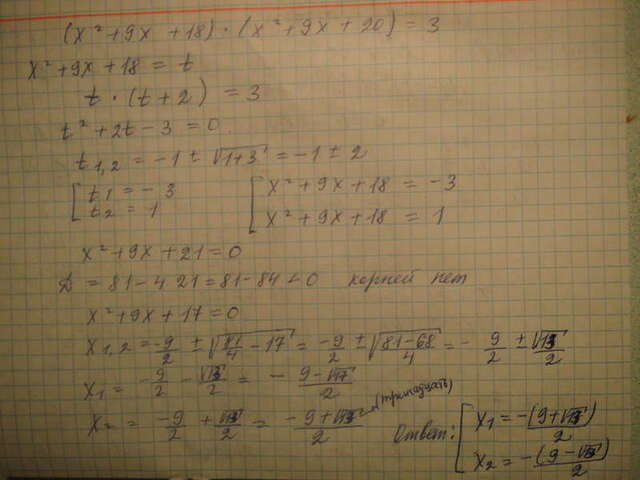 (x² + 9x + 18) · (x² + 9x + 20) = 3
x² + 9x + 18 = t
t · (t + 2) = 3
t² + 2t − 3 = 0
t₁,₂ = −1 ± √(1+3) = −1 ± 2
[ t₁ = −3 [ x² + 9x + 18 = −3
t₂ = 1 x² + 9x + 18 = 1
x² + 9x + 21 = 0
D = 81 − 4·21 = 81 − 84 < 0 корней нет
x² + 9x + 17 = 0
x₁,₂ = −9/2 ± √(81/4 − 17) = −9/2 ± √((81−68)/4) = − 9/2 ± √13/2
x₁ = −9/2 − √13/2 = − (9 − √17)/2
x₂ = −9/2 + √13/2 = (−9 + √13)/2 (тринадцать)
Ответ: [ x₁ = −(9 + √13)/2
x₂ = −(9 − √13)/2